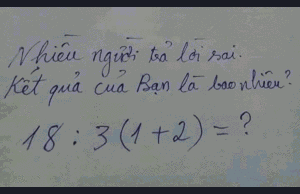 Nhiều người trả lời sai.
Kết quả của Bạn là bao nhiêu?
18 : 3 (1 + 2) = ?